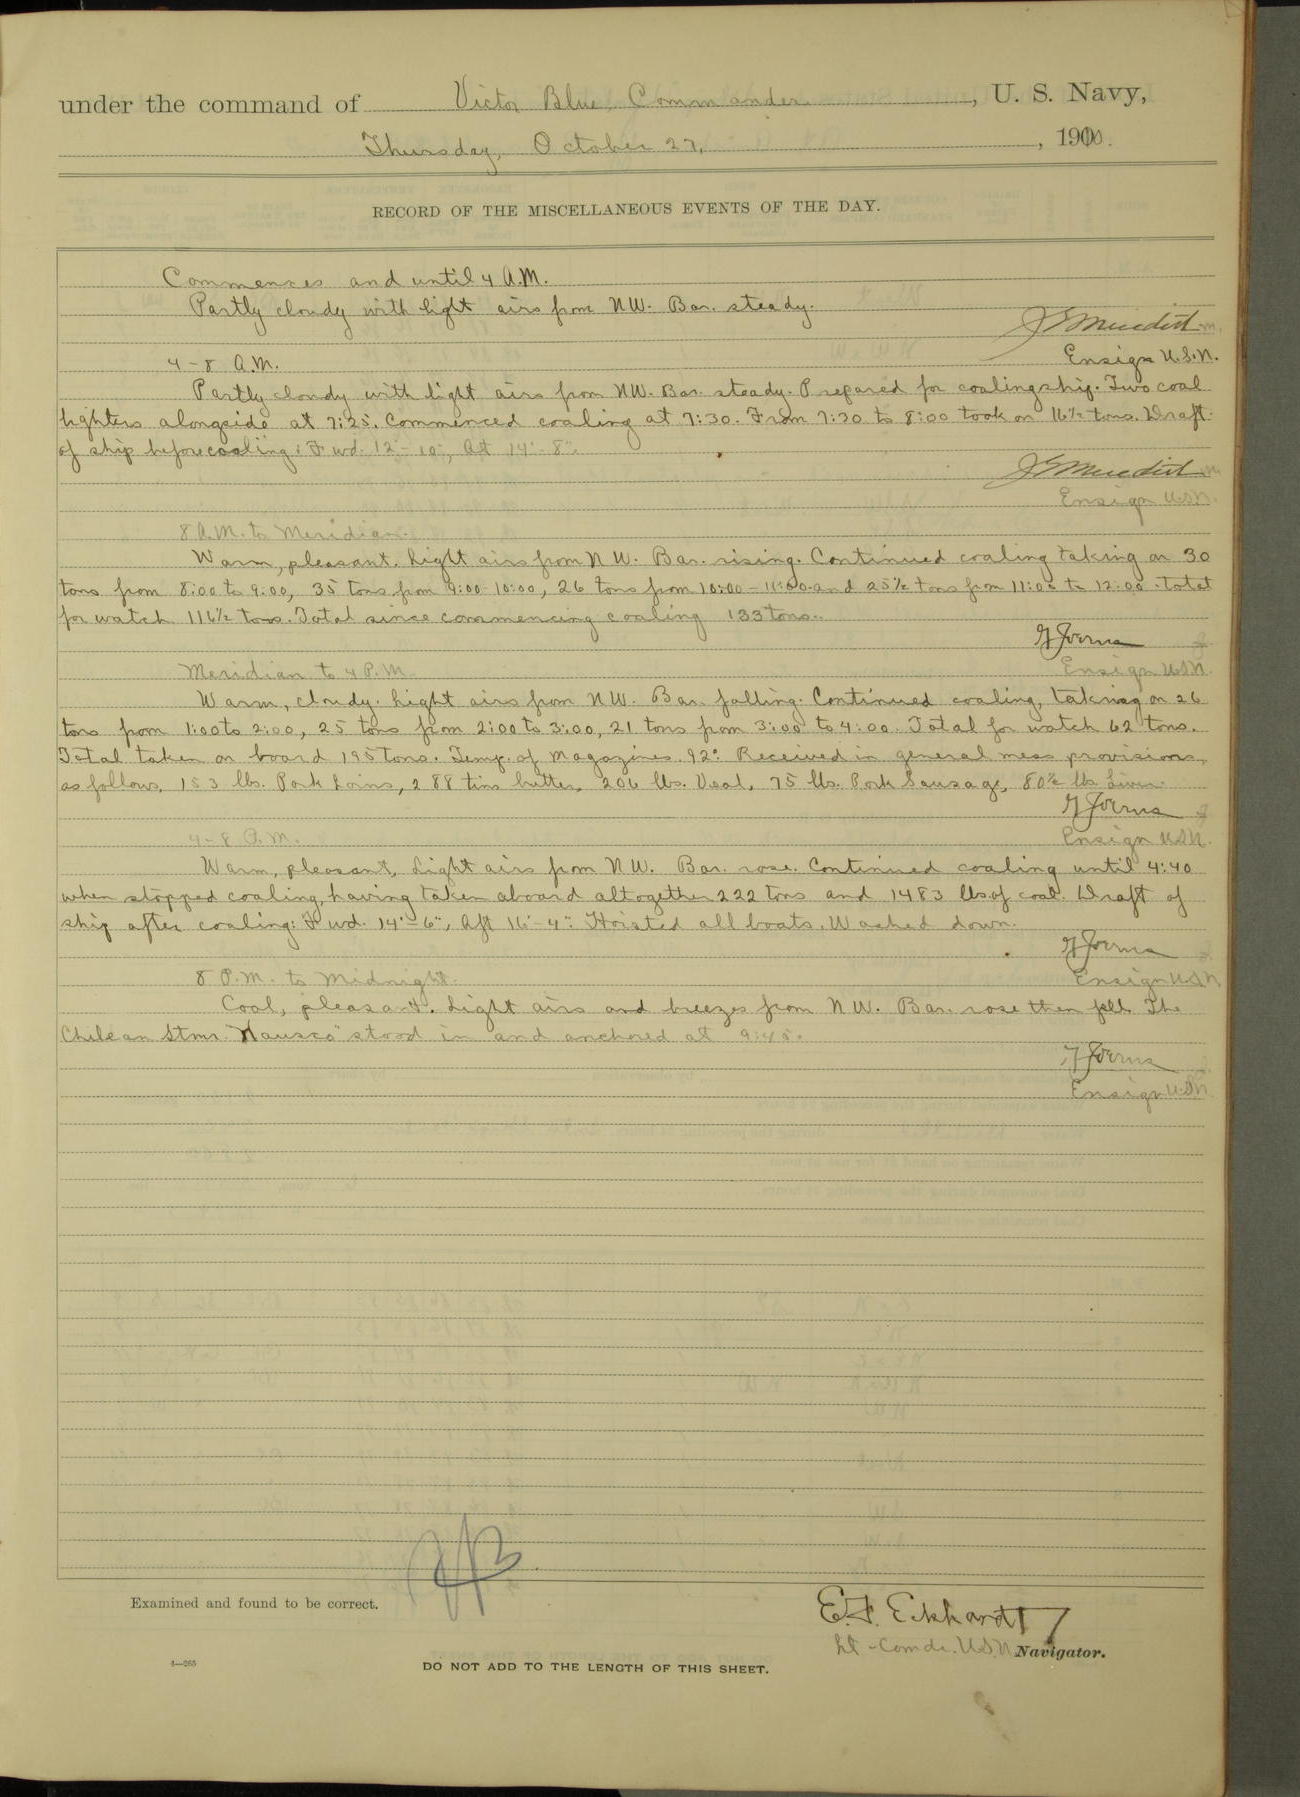 under the command of Victor Blue, Commander, U. S. Navy,
Thursday, October 27, , 1910.
RECORD OF THE MISCELLANEOUS EVENTS OF THE DAY.
Commences and until 4 A.M.
Partly cloudy with light airs from NW. Bar. steady.
Ensign U.S.N.
4-8 A.M.
Partly cloudy with light airs from NW. Bar steady. Prepared for coaling ship. Two coal
lighters alongside at 7:25. Commenced coaling at 7:30. From 7:30 to 8:00 took on 16½ tons. Draft
of ship before coaling: Fwd. 12'-10", Aft 14'-8".
Ensign U.S.N.
8 A.M. to Meridian.
Warm, pleasant. Light airs from NW. Bar. rising. Continued coaling taking on 30
tons from 8:00 to 9:00, 35 tons from 9:00-10:00, 26 tons from 10:00-11:00 and 25½ tons from 11:00 to 12:00. total
for watch 116½ tons. Total since commencing coaling 133 tons.
Ensign U.S.N.
Meridian to 4 P.M.
Warm, cloudy. Light airs from NW. Bar. falling. Continued coaling, taking on 26
tons from 1:00 to 2:00, 25 tons from 2:00 to 3:00, 21 tons from 3:00 to 4:00. Total for watch 62 tons.
Total taken on board 195 tons. Temp. of Magazines 92°. Received in general mess provisions,
as follows, 153 lbs. Pork Loins, 288 tins butter, 206 lbs. Veal, 75 lbs. Pork Sausage, 80½ lbs Liver.
Ensign U.S.N.
4-8 P.M.
Warm, pleasant, Light airs from NW. Bar. rose. Continued coaling until 4:40
when stopped coaling, having taken aboard altogether 222 tons and 1483 lbs of coal. Draft of
ship after coaling: Fwd. 14'-6", Aft 16'-4". Hoisted all boats. Washed down.
Ensign U.S.N.
8 P.M. to Midnight.
Cool, pleasant. Light airs and breezes from NW. Bar. rose then fell. The
Chilean Stmr. "Hausco" stood in and anchored at 9:45.
Ensign U.S.N.
Examined and found to be correct.
E.F. Eckhardt
Lt-Comdr. U.S.N. Navigator.
4—265
DO NOT ADD TO THE LENGTH OF THIS SHEET.